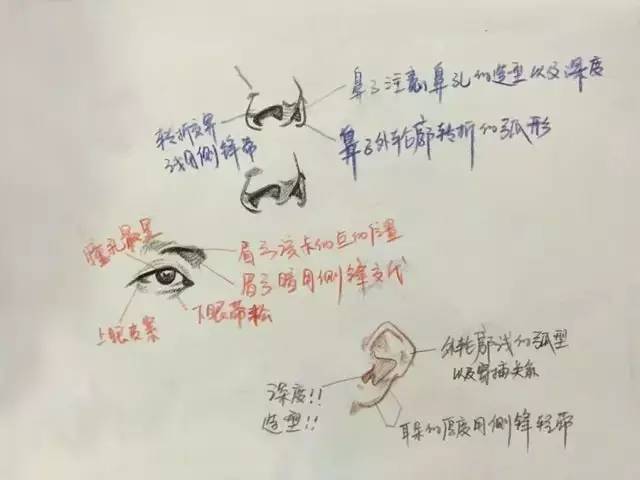 鼻子注意鼻孔的造型以及深度
转折交界
线用侧锋带
鼻子外轮廓转折的弧形
瞳孔最黑
眉弓该卡的点的位置
眉弓暗用侧锋交代
上眼皮紧
下眼带松
外轮廓线的弧型
以及穿插关系
深度!!
造型!!
耳朵的厚度用侧锋轻带